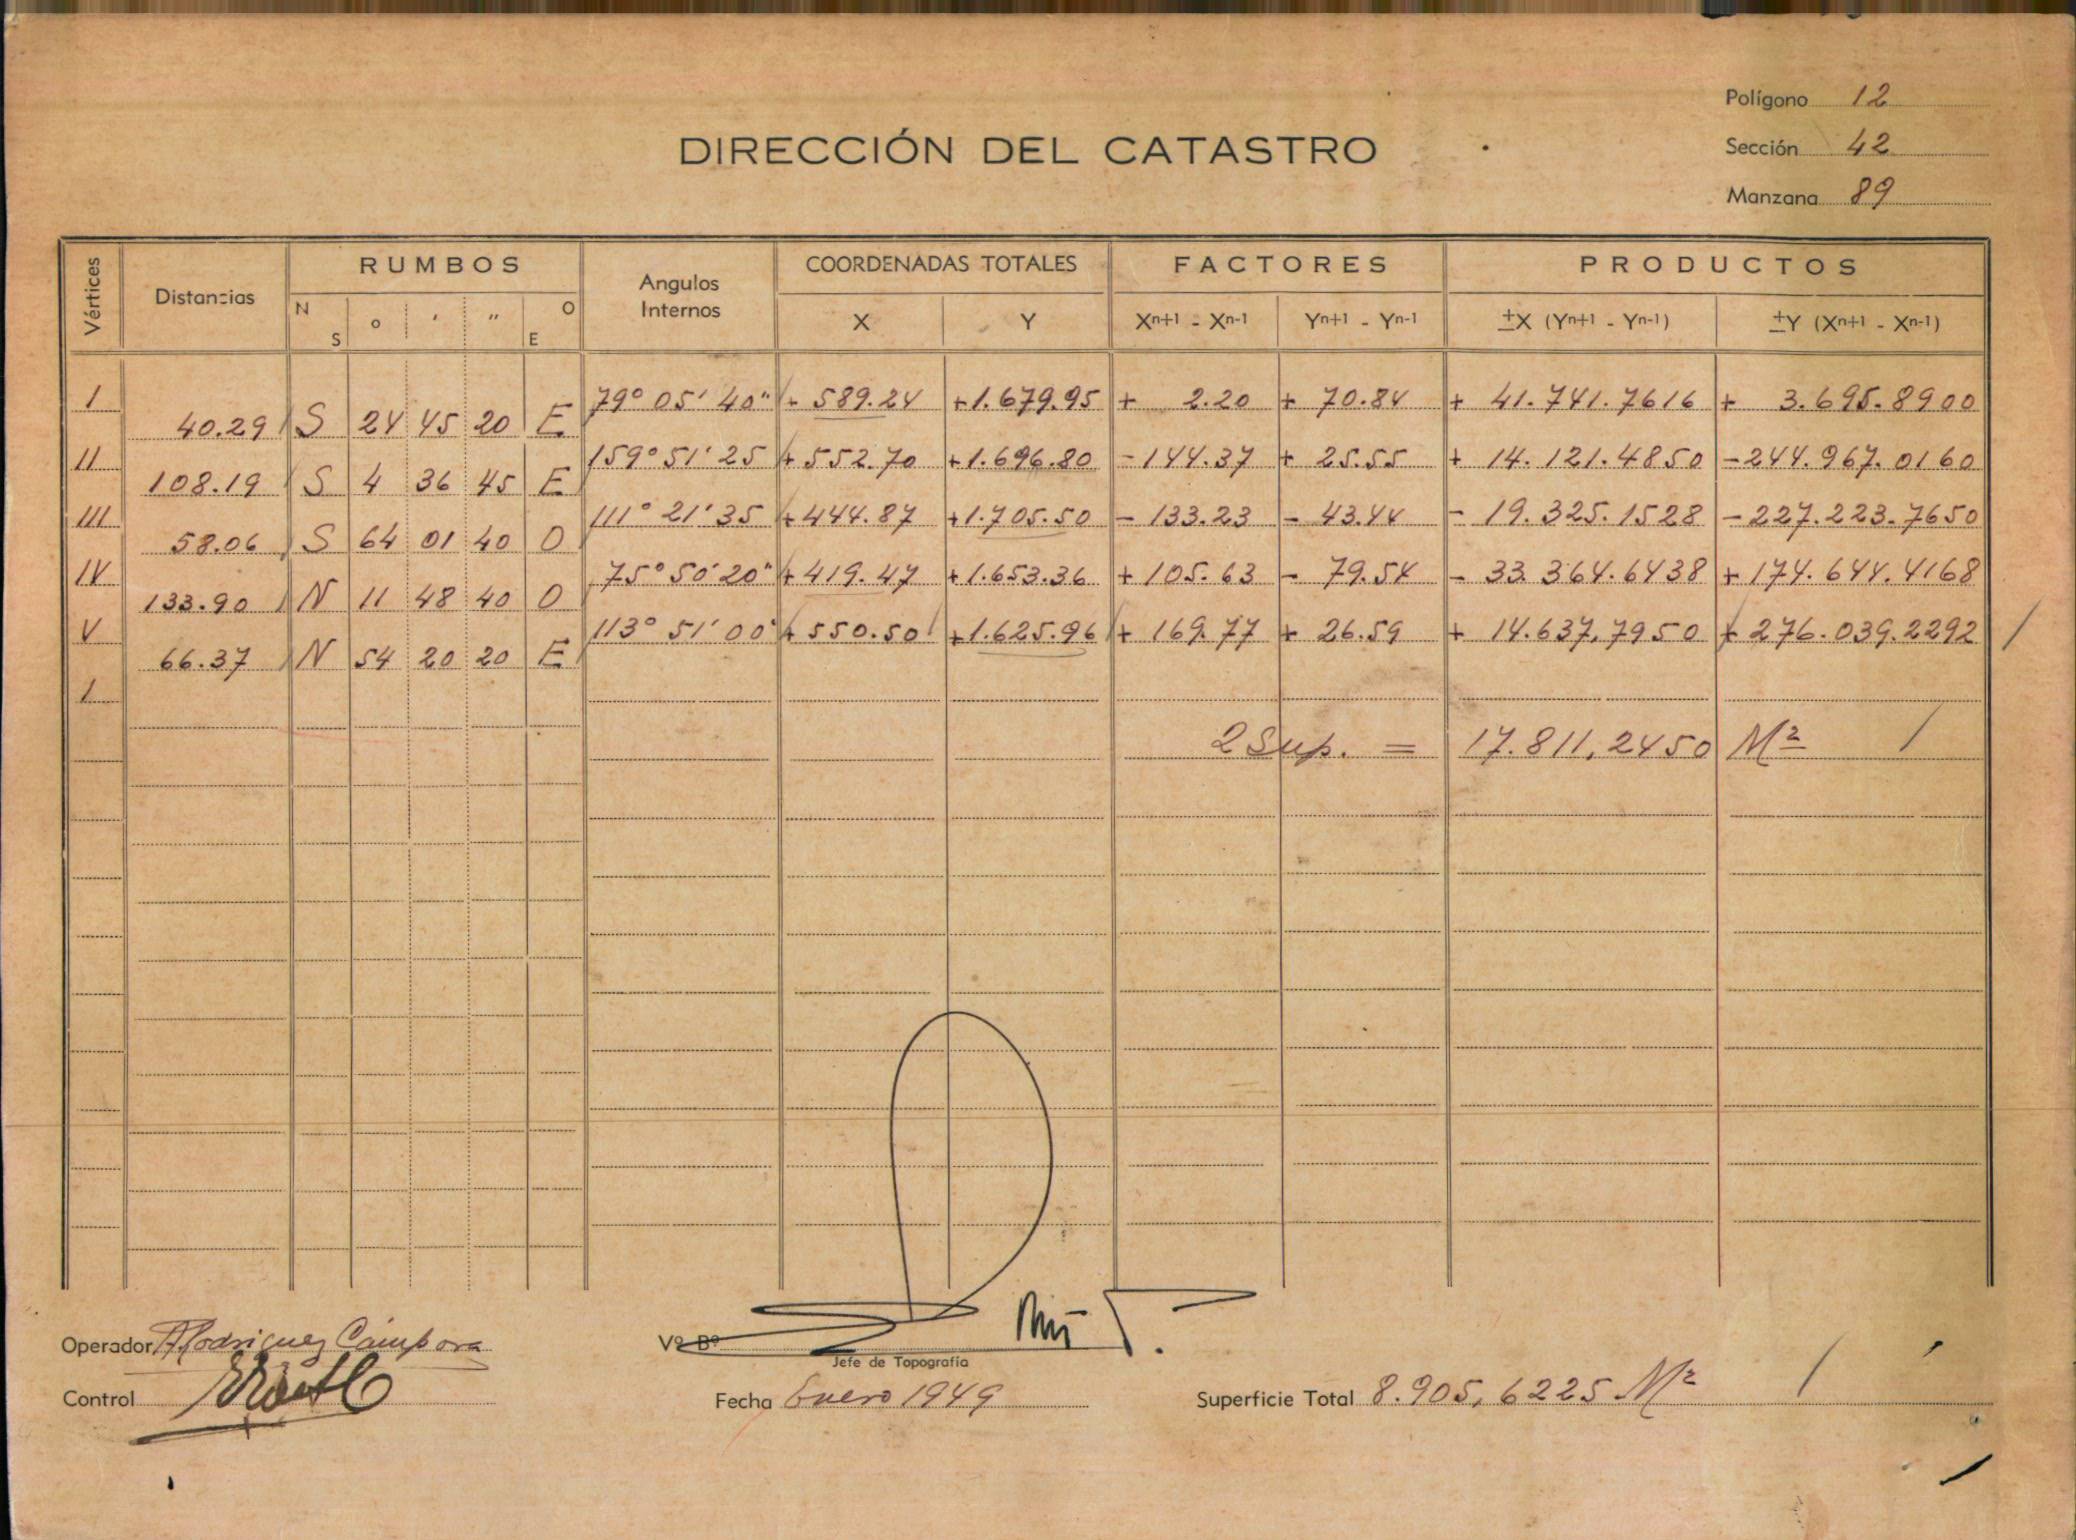 Polígono 12
DIRECCIÓN DEL CATASTRO
Sección 42
Manzana 89
Vértices Distancias RUMBOS Angulos Internos COORDENADAS TOTALES FACTORES PRODUCTOS
N S o ' " O E X Y Xn+1 - Xn-1 Yn+1 - Yn-1 ±X (Yn+1 - Yn-1) ±Y (Xn+1 - Xn-1)
I 79° 05' 40" + 589.24 +1.679.95 + 2.20 + 70.84 + 41.741.7616 + 3.695.8900
40.29 S 24 45 20 E
II 159° 51' 25 + 552.70 +1.696.80 -144.37 + 25.55 + 14.121.4850 -244.967.0160
108.19 S 4 36 45 E
III 111° 21' 35 +444.87 +1.705.50 - 133.23 - 43.44 - 19.325.1528 -227.223.7650
58.06 S 64 01 40 O
IV 75° 50' 20" +419.47 +1.653.36 + 105.63 - 79.54 - 33.364.6438 +174.644.4168
133.90 N 11 48 40 O
V 113° 51' 00" + 550.50 +1.625.96 + 169.77 + 26.59 + 14.637,7950 + 276.039.2292
66.37 N 54 20 20 E
I
2 Sup. = 17.811,2450 M²
Operador Rodriguez Cámpora Vº Bº
Jefe de Topografía
Control Fecha Enero 1949 Superficie Total 8.905,6225 M²